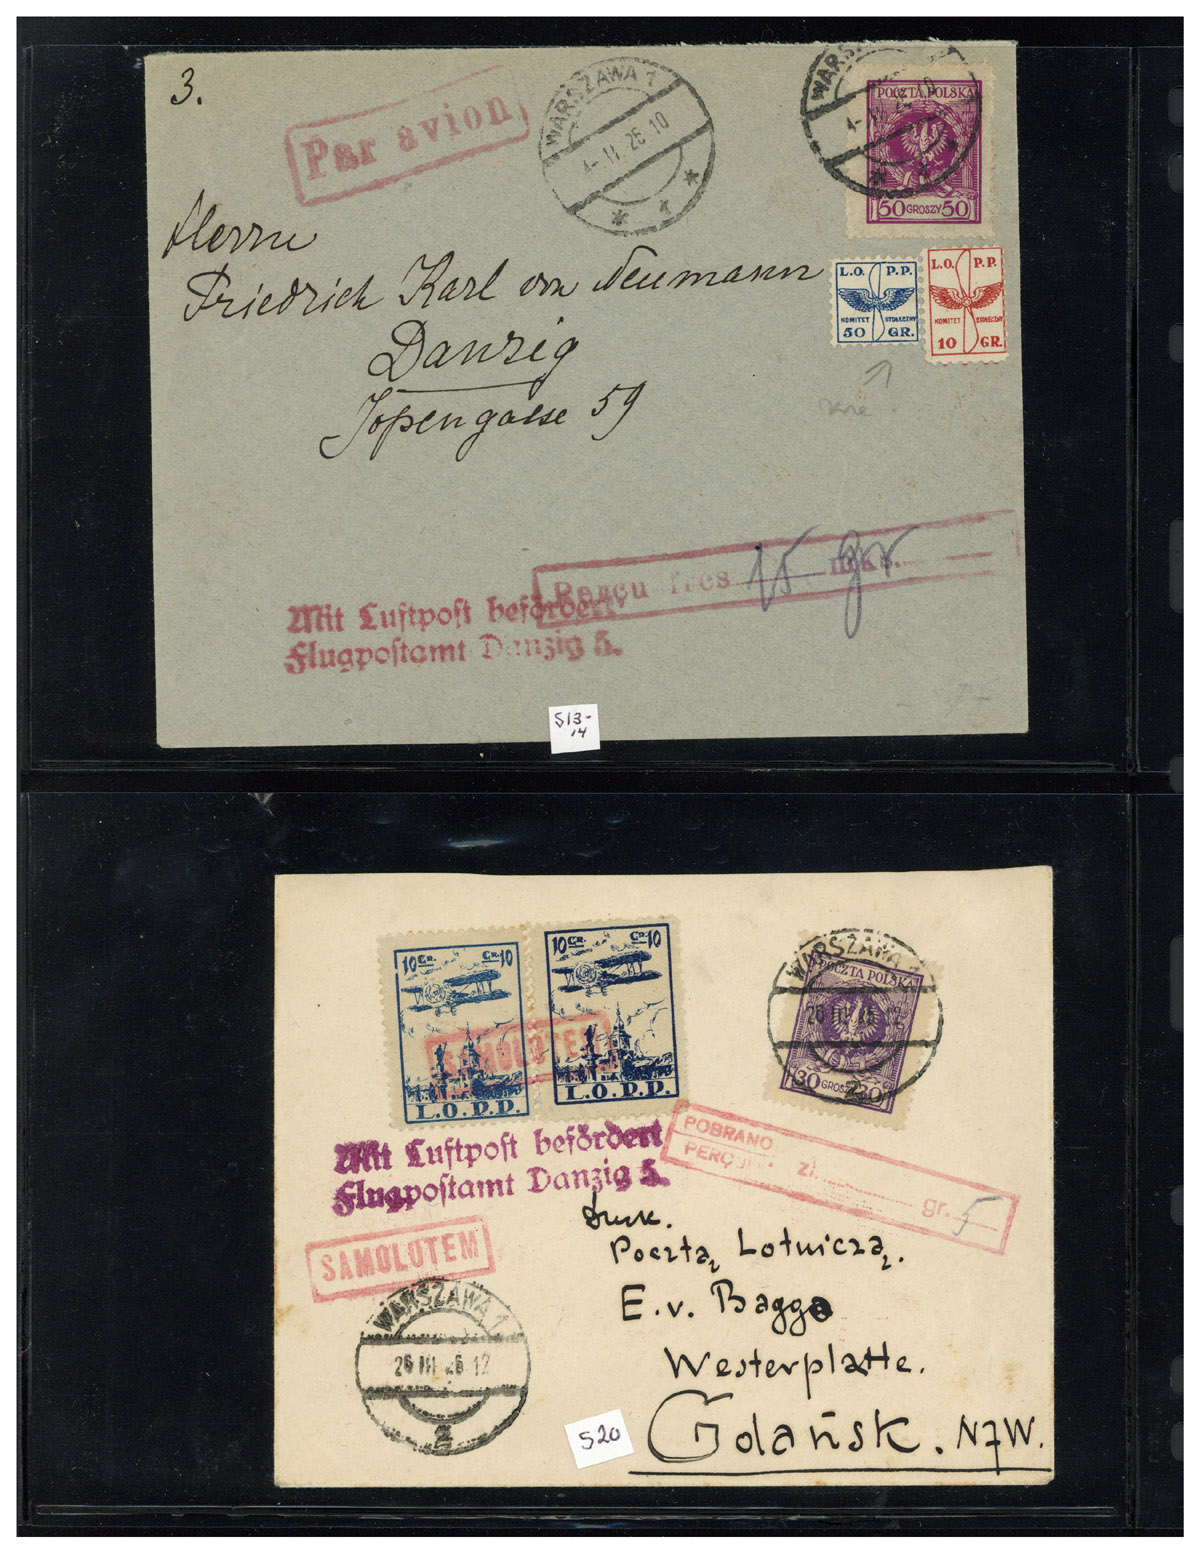 3.
Par avion
WARSZAWA 1
4-II 25 10
* 1 *
POCZTA POLSKA
50 GROSZY 50
L.O. P.P.
KOMITET STOŁECZNY
50 GR.
L.O. P.P.
KOMITET STOŁECZNY
10 GR.
Herrn
Friedrich Karl von Neumann
Danzig
Jopengasse 59
Perçu frcs 15 gr mks.
Mit Luftpost befördert.
Flugpostamt Danzig 5.
513-
14
10 GR. GR. 10
L.O.P.P.
10 GR. GR. 10
L.O.P.P.
SAMOLOTEM
WARSZAWA 1
26 III 25 12
2
POCZTA POLSKA
30 GROSZY 30
Mit Luftpost befördert
Flugpostamt Danzig 5.
POBRANO
PERÇU zł. gr. 5
SAMOLOTEM
WARSZAWA 1
26 III 25 12
2
Druk.
Pocztą Lotniczą.
E.v. Bagge
Westerplatte.
Gdańsk. N7W.
520